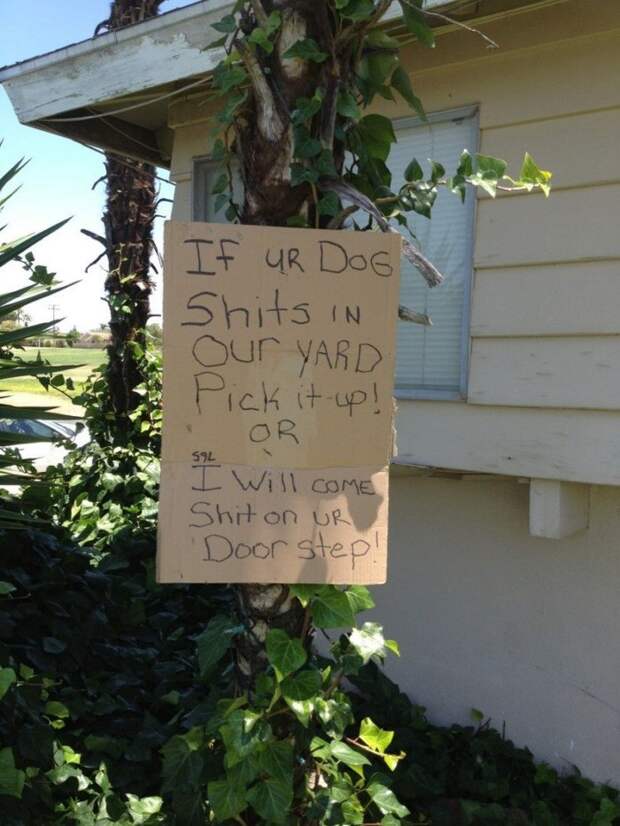 IF UR DOG
Shits IN
Our YARD
Pick it up!
OR
I Will COME
Shit on UR
Door step!